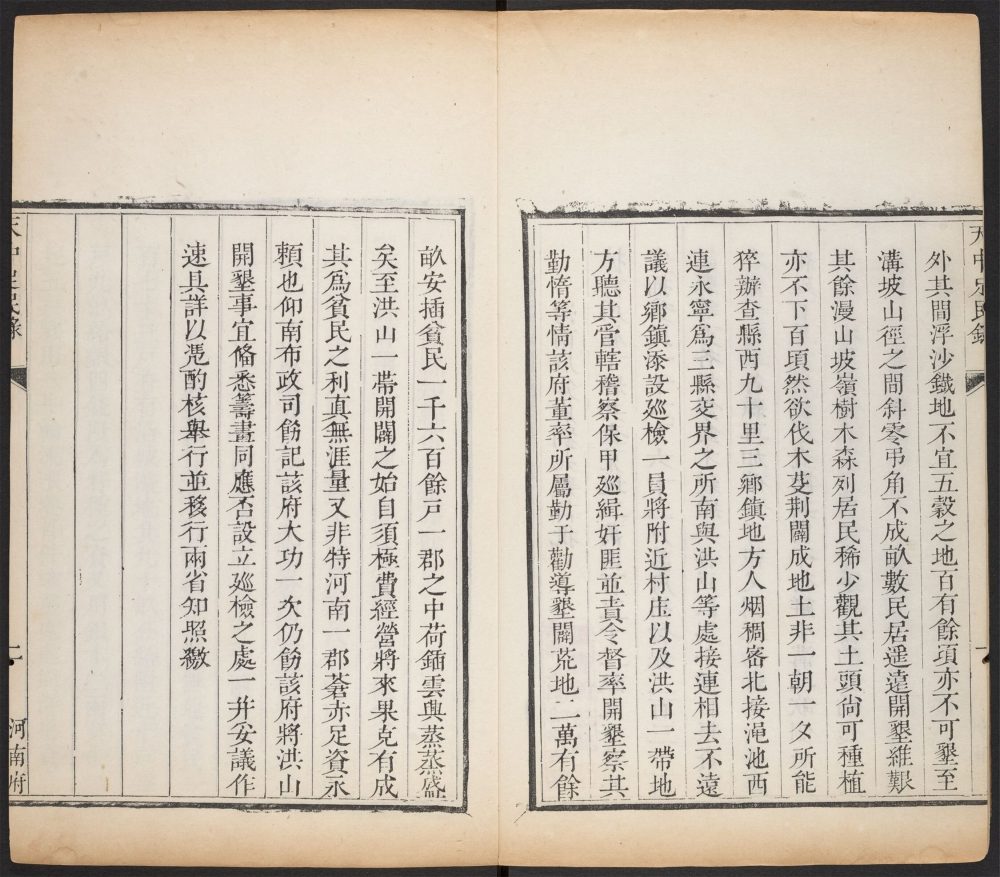 外其間浮沙鐵地不宜五穀之地百有餘項亦不可墾至
溝坡山徑之間斜零弔角不成畝數民居遥遠開墾維艱
其餘漫山坡嶺樹木森列居民稀少觀其土頭尚可種植
亦不下百頃然欲伐木芟荆闢成地土非一朝一夕所能
猝辦查縣西九十里三鄉鎮地方人烟稠密北接澠池西
連永寧爲三縣交界之所南與洪山等處接連相去不遠
議以鄉鎮添設廵檢一員將附近村庄以及洪山一帶地
方聽其管轄稽察保甲廵緝奸匪並責令督率開墾察其
勤惰等情該府董率所屬勤于勸導墾闢荒地二萬有餘
畝安插貧民一千六百餘戸一郡之中荷鍤雲興蒸蒸盛
矣至洪山一帶開闢之始自須極費經營將來果克有成
其爲貧民之利真無涯量又非特河南一郡蒼赤足資永
頼也仰南布政司飭記該府大功一次仍飭該府將洪山
開墾事宜俻悉籌畫同應否設立廵檢之處一并妥議作
速具詳以凴酌核舉行並移行兩省知照繳
二
河南府